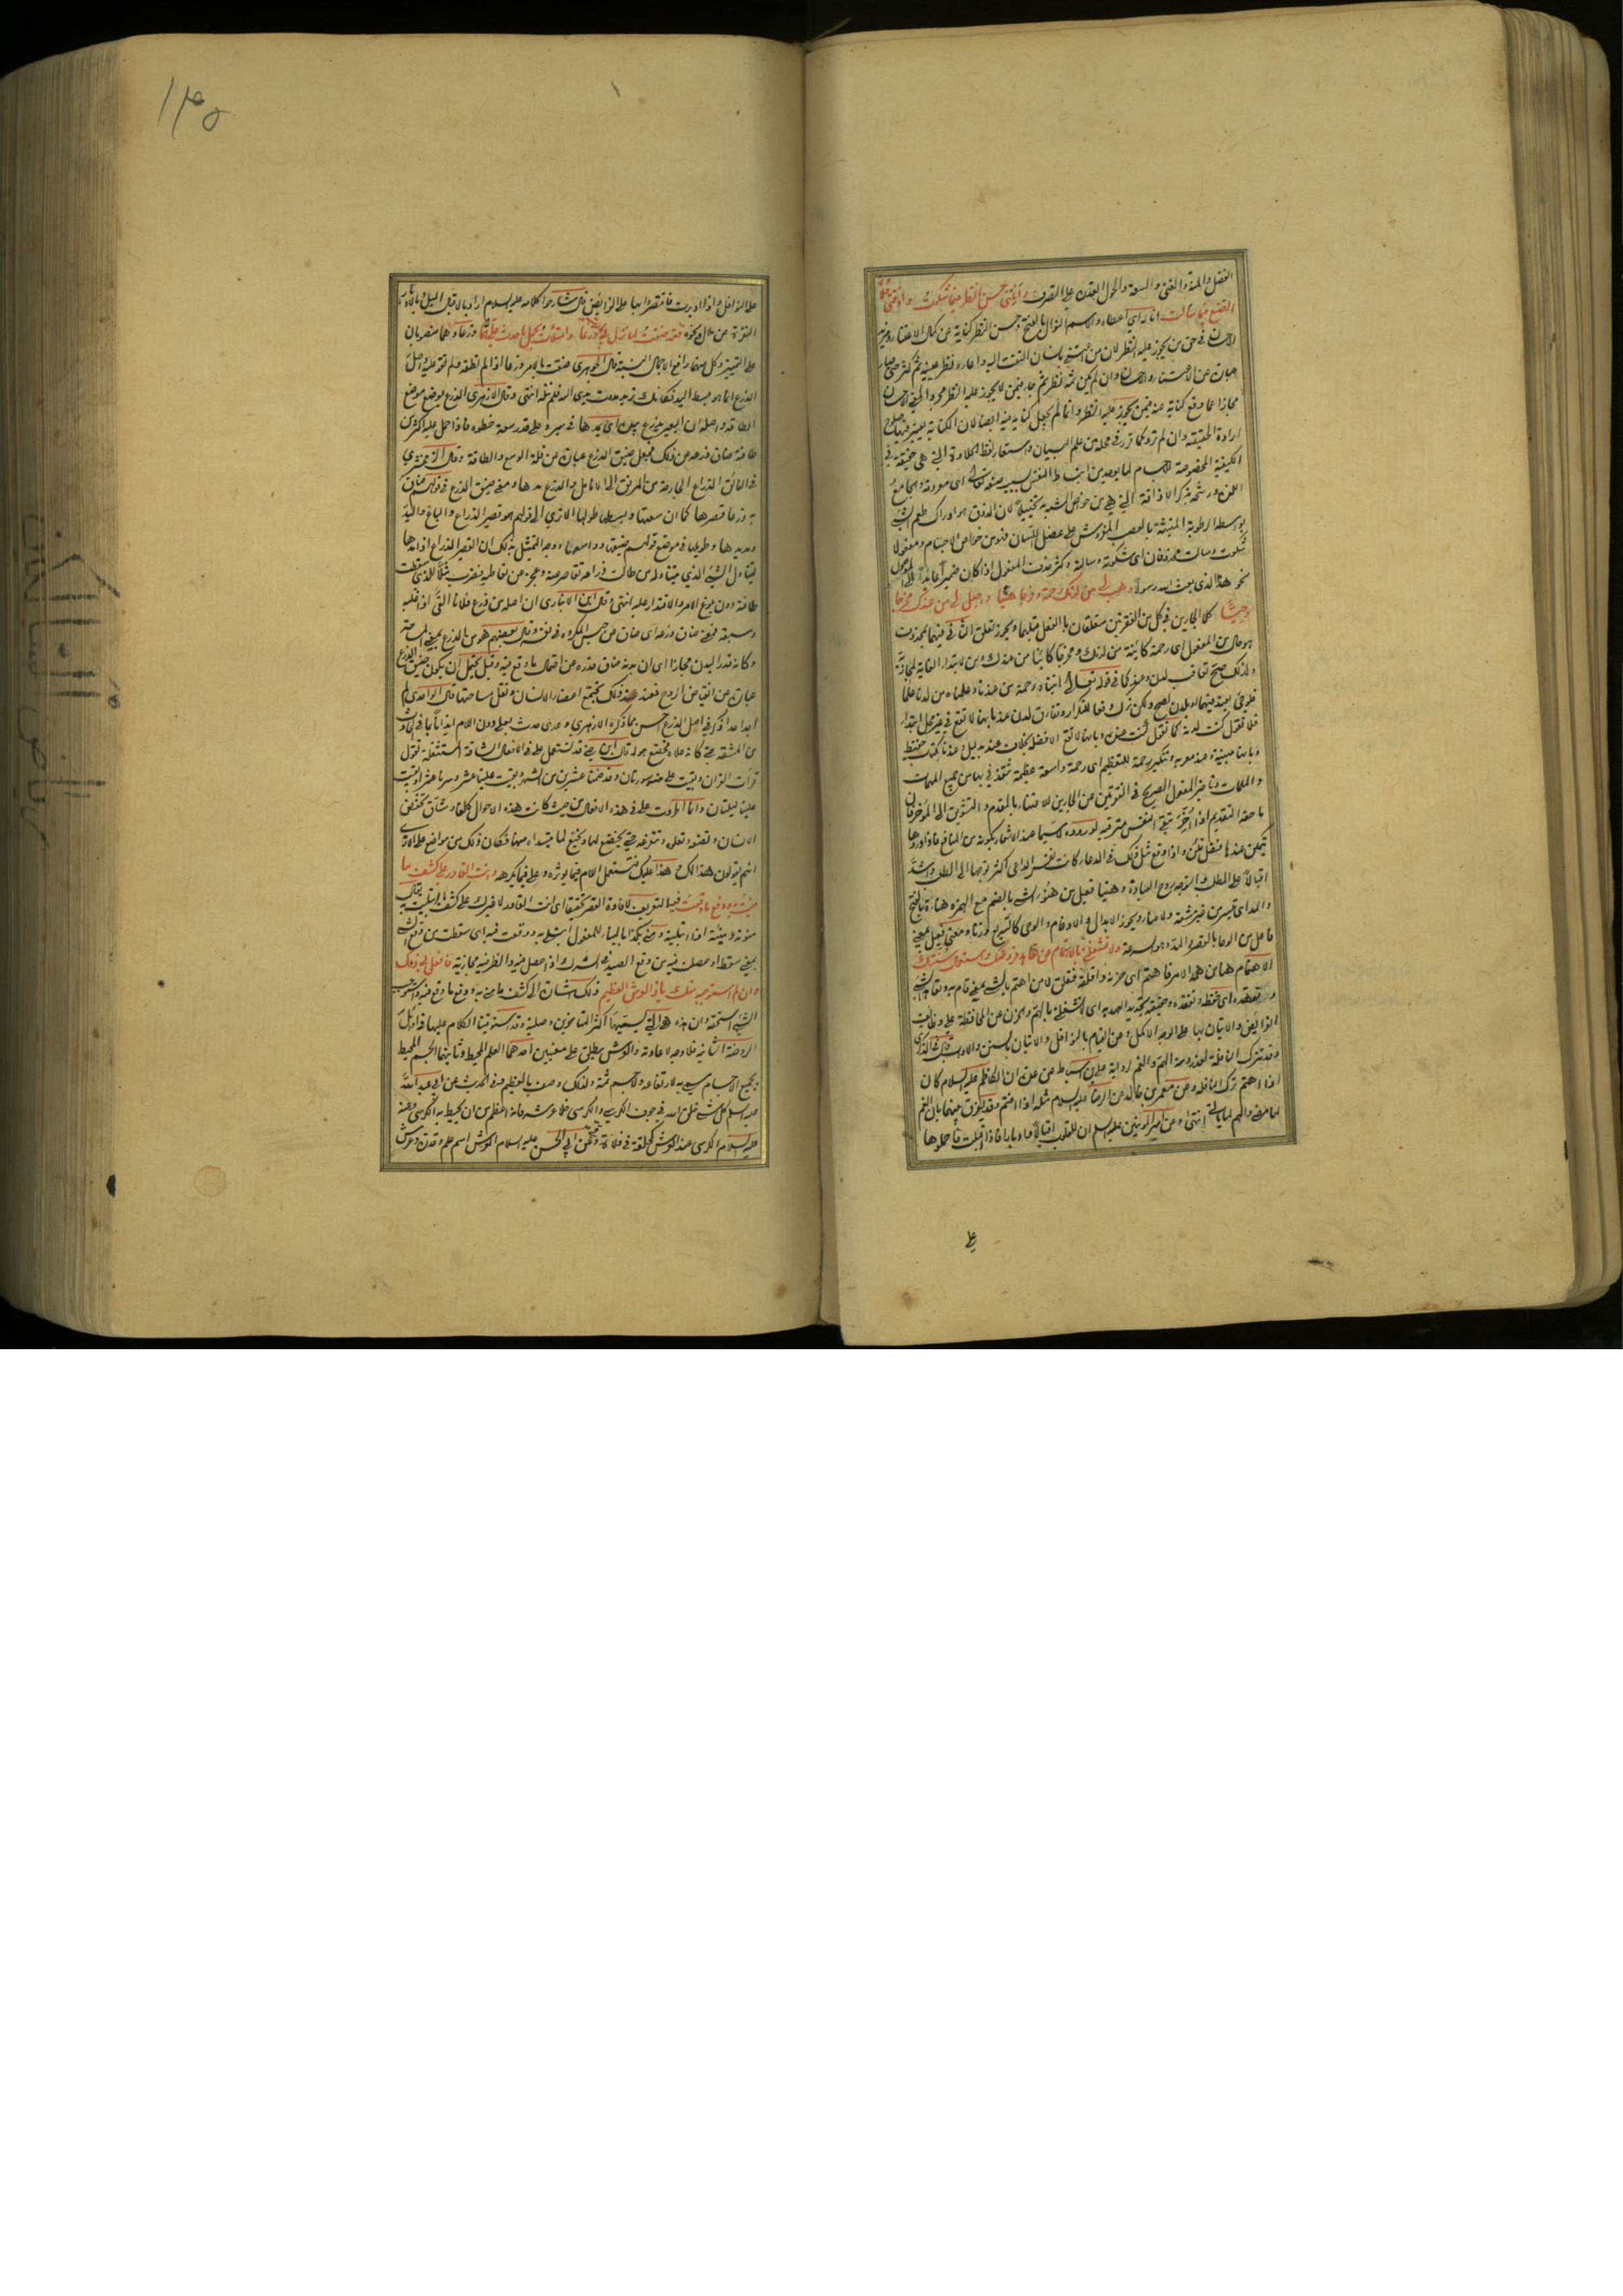 الفضل والمنة والغنى والسعة والحول القدرة على التصرف وانلني حسن النظر فيما شكوت واذقني حلاوة
الصنع فيما سالت اناله اي اعطاه والاسم النوال بالفتح وحسن النظر كناية عن كمال الاعتناء ومزيد
الاحسان في حق من يجوز عليه النظر لان من اعتنى بانسان التفت اليه واعاره نظر عينيه ثم كثر حتى صار
عبارة عن الاعتناء والاحسان وان لم يكن ثمة نظر ثم جاء فيمن لا يجوز عليه النظر مجردا لمعنى الاحسان
مجازا عما وقع كناية عنه فيمن يجوز عليه النظر وانما لم يجعل كناية فيه ايضا لان الكناية يعتبر فيها صلوح
ارادة الحقيقة وان لم ترد كما قرر في محله من علم البيان واستعار لفظ الحلاوة التي هي حقيقة في
الكيفية المخصوصة بالاجسام لما يوجد من انبساط النفس بسبب صنعه تعالى اي معروفه والجامع
اللذة ورشحه بذكر الاذاقة التي هي من خواص المشبه به تخييلا لان الذوق هو ادراك طعم الشيء
بواسطة الرطوبة المنبثة بالعصب المفروش على عضل اللسان فهو من خواص الاجسام ومفعولا
شكوت وسالت محذوفان اي شكوته وسالته وكثر حذف المفعول اذا كان ضميرا عائدا الى الموصول
نحو هذا الذي بعث الله رسولا وهب لي من لدنك رحمة وفرجا هنيئا واجعل لي من عندك مخرجا
وحيا كلا الجارين في كل من الفقرتين متعلقان بالفعل قبلهما ويجوز تعلق الثاني فيهما بمحذوف
هو حال من المفعول اي رحمة كائنة من لدنك ومخرجا كائنا من عندك ومن لابتداء الغاية المجازية
ولذلك صح تعاقب لدن وعند كما في قوله تعالى اتيناه رحمة من عندنا وعلمناه من لدنا علما
فلو جيء بعند فيهما او بلدن لصح ولكن ترك دفعا للتكرار وتفارق لدن عند بانها لا تقع في غير محل ابتداء
فلا تقول كنت لدنه كما تقول كنت عنده وبانها لا تقع الا فضلة بخلاف عند بدليل وعندنا كتاب حفيظ
وبانها مبنية وعند معربة وتنكير رحمة للتعظيم اي رحمة واسعة عظيمة تنقذني بها من جميع المهمات
والملمات وتاخير المفعول الصريح في الفقرتين عن الجارين للاعتناء بالمقدم والتشويق الى المؤخر فان
ما حقه التقديم اذا اخر تبقى النفس مترقبة لوروده لا سيما عند الاشعار بكونه من المنافع فاذا وردها
يتمكن عندها فضل تمكن واذا وقع مثل ذلك في الدعاء كانت نفس الداعي اكثر توجها الى المطلوب واشد
اقبالا على المطلب والتوجه روح العبادة وهنيئا فعيل من هنؤ الشيء بالضم مع الهمزة هناءة بالفتح
والمد اي تيسر من غير مشقة ولا عناء ويجوز الابدال والادغام والوحي كالسريع وزنا ومعنى فعيل بمعنى
فاعل من الوحا بالقصر والمد وهو السرعة ولا تشغلني بالاهتمام عن تعاهد فروضك واستعمال سنتك
الاهتمام هنا من همه الامر فاهتم اي حزنه واقلقه فتعلق لا من اهتم بالشيء بمعنى قام به وتعاهد الشيء
وتعهده اي تحفظه وتفقده وحقيقته تجديد العهد به اي لا تشغلني بالهم والحزن عن المحافظة على وظائف
الفرائض والاتيان بها على الوجه الاكمل وعن القيام بالنوافل والاتيان بالسنن والاداب قال في الذكرى
وقد تترك النافلة لعذر ومنه الهم والغم لرواية علي بن اسباط عن عدة ان الكاظم عليه السلام كان
اذا اهتم ترك النافلة وعن معمر بن خالد عن الرضا عليه السلام مثله اذا اغتم وقد يفرق بينهما بان الغم
لما مضى والهم لما ياتي انتهى وعن امير المؤمنين عليه السلام ان للقلوب اقبالا وادبارا فاذا اقبلت فاحملوها
على
على النوافل واذا ادبرت فاقتصروا بها على الفرائض قال شارحوا كلامه عليه السلام اراد بالاقبال الميل وبالادبار
النفرة عن ملال ونحوه فقد ضقت لما نزل بي يا رب ذرعا وامتلات بحمل ما حدث علي هما وذرعا وهما منصوبان
على التمييز وكل منهما رافع لاجمال النسبة قال الجوهري ضقت بالامر ذرعا اذا لم تطقه ولم تقو عليه واصل
الذرع انما هو بسط اليد فكانك تريد مددت يدي اليه فلم تنله انتهى وقال الازهري الذرع يوضع موضع
الطاقة واصله ان البعير يذرع بيديه اي يمدها في سيره على قدر سعة خطوه فاذا حمل عليه اكثر من
طاقته ضاق ذرعه عن ذلك فجعل ضيق الذرع عبارة عن قلة الوسع والطاقة وقال الزمخشري
في الفائق الذراع الجارحة من المرفق الى الانامل والذرع مدها ومعنى ضيق الذرع في قولهم ضاق
به ذرعا قصرها كما ان سعتها وبسطها طولها الا ترى الى قولهم هو قصير الذراع والباع واليد
ومديدها وطويلها في موضع قولهم ضيقها وواسعها ووجه التمثيل بذلك ان القصير الذراع اذا مدها
ليتناول الشيء الذي يتناوله من طالت ذراعه تقاصر عنه وعجز عن تعاطيه فضرب مثلا للذي سقطت
طاقته دون بلوغ الامر والاقتدار عليه انتهى وقال ابن الانباري ان اصله من ذرع فلانا القيء اذا غلبه
وسبقه فمعنى ضاق ذرعه اي ضاق عن حبس المكروه في نفسه وقال بعضهم هو من الذرع بمعنى المساحة
وكانه قدر البدن مجازا اي ان بدنه ضاق قدره عن احتمال ما وقع فيه وقيل يحتمل ان يكون ضيق الذرع
عبارة عن انقباض الروح فعند ذلك تجتمع اعضاء الانسان وتقل مساحتها قال الواحدي لم
اجد احدا ذكر في اصل الذرع احسن مما ذكره الازهري وعدي حدث بعلى دون اللام ايذانا بما في الحادث
من المشقة حتى كانه علاه فخضع حوله قال ابن جني قد تستعمل على في الافعال الشاقة المستثقلة تقول
قرات القران وبقيت علي منه سورتان وقد صمنا عشرين من الشهر وبقيت علينا عشر وسرنا عشرا وبقيت
علينا ليلتان وانما اطردت على في هذه الافعال من حيث كانت هذه الاحوال كلفا ومشاق تخفض
الانسان وتضعه وتعلوه وتتفرعه حتى يخضع لها ويخنع لما يتسداه منها فكان ذلك من مواضع على الا ترى
انهم يقولون هذا لك وهذا عليك فتستعمل اللام فيما يؤثره وعلى فيما يكرهه وانت القادر على كشف ما
منيت به ودفع ما وقعت فيه التعريف لافادة القصر تحقيقا اي انت القادر لا غيرك على كشف ما ابتليت به يقال
منوته ومنيته اذا ابتليته ومني بكذا بالبناء للمفعول ابتلي به ووقعت فيه اي سقطت من وقع الشيء
بمعنى سقط او حصلت فيه من وقع الصيد في الشرك اذا حصل فيه والظرفية مجازية فافعل بي ذلك
وان لم استوجبه منك يا ذا العرش العظيم ذلك اشارة الى كشف ما مني به ودفع ما وقع فيه واستوجب
الشيء استحقه وان هذه هي التي يسميها اكثر المتاخرين وصلية وقد استوفينا الكلام عليها في اوائل
الروضة الثانية فلا وجه لاعادته والعرش يطلق على معنيين احدهما العلم المحيط وثانيهما الجسم المحيط
بجميع الاجسام سمي به لارتفاعه ولا جسم ثمة ولذلك وصف بالعظيم ففي الحديث عن ابي عبد الله
عليه السلام كل شيء خلق الله في جوف الكرسي والكرسي خلا عرشه فانه اعظم من ان يحيط به الكرسي وعنه
عليه السلام الكرسي عند العرش كحلقة في فلاة وعن ابي الحسن عليه السلام العرش اسم علم وقدرة وعرش